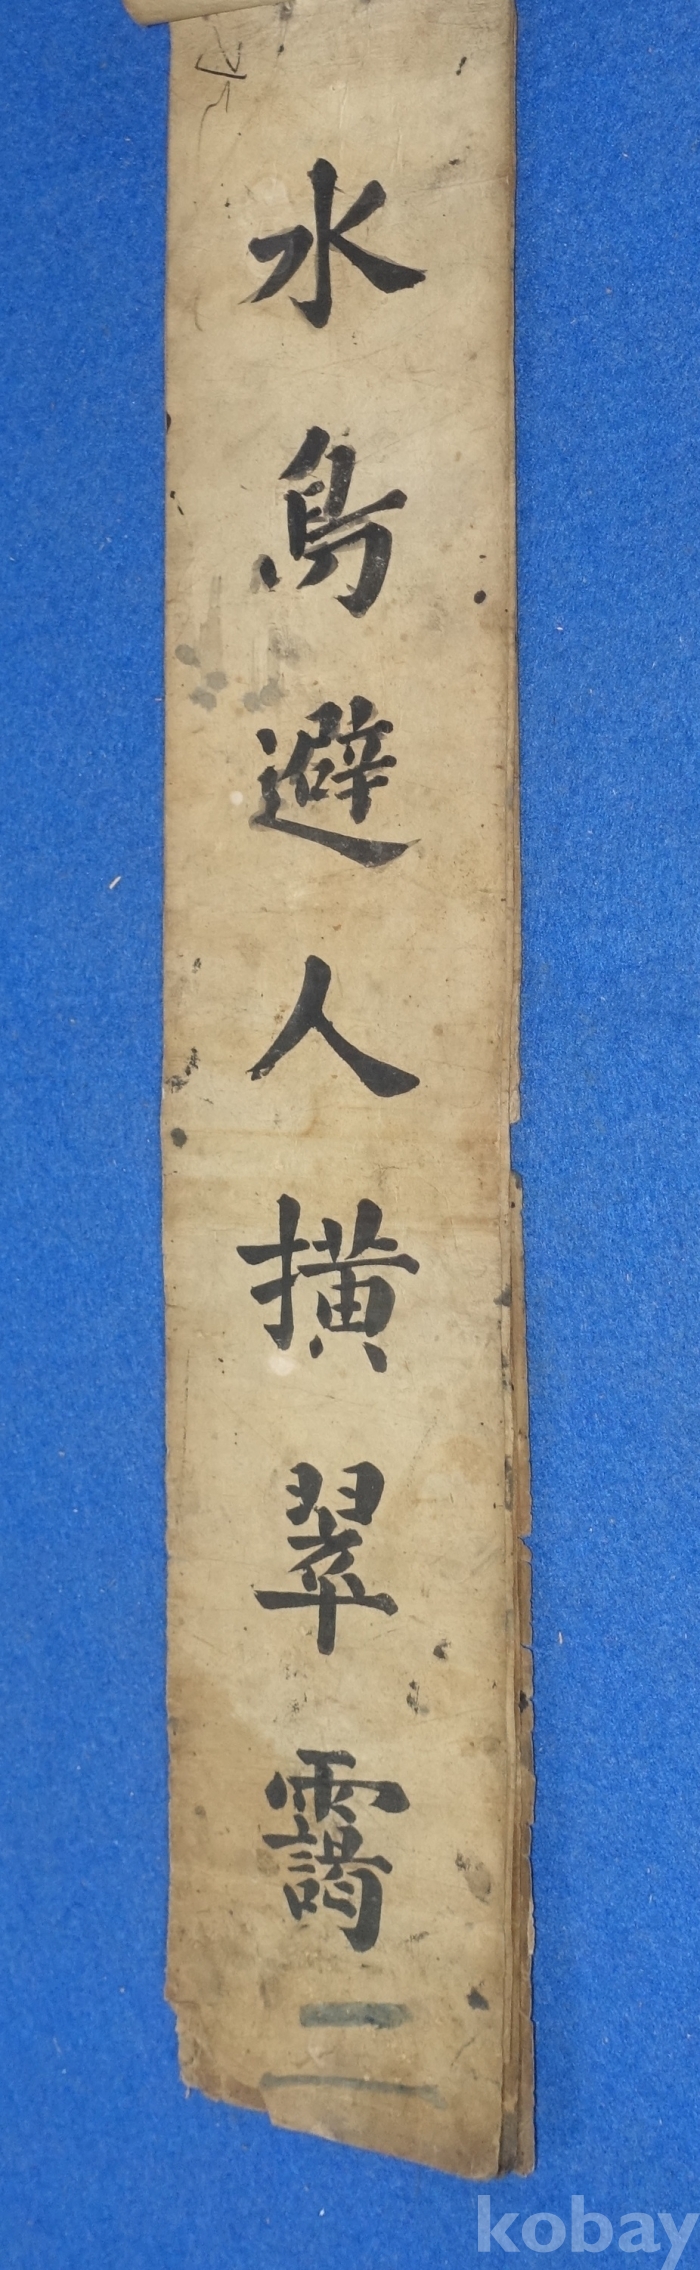 水鳥避人橫翠靄
二
kobay